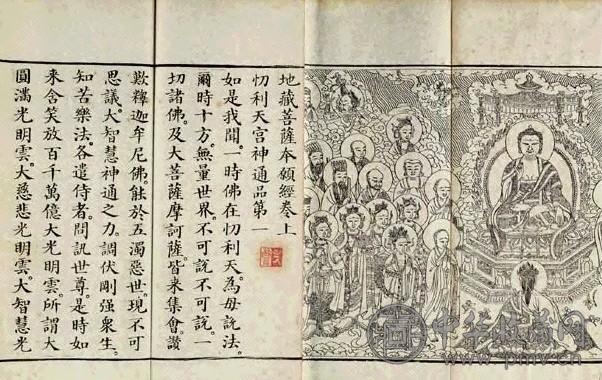 地藏菩薩本願經卷上
忉利天宮神通品第一
如是我聞。一時佛在忉利天。為母說法。
爾時十方。無量世界。不可說不可說。一
切諸佛。及大菩薩摩訶薩。皆來集會讚
歎釋迦牟尼佛。能於五濁惡世。現不可
思議。大智慧神通之力。調伏剛强衆生。
知苦樂法。各遣侍者。問訊世尊。是時如
來含笑放百千萬億大光明雲。所謂大
圓滿光明雲。大慈悲光明雲。大智慧光
中华收藏网